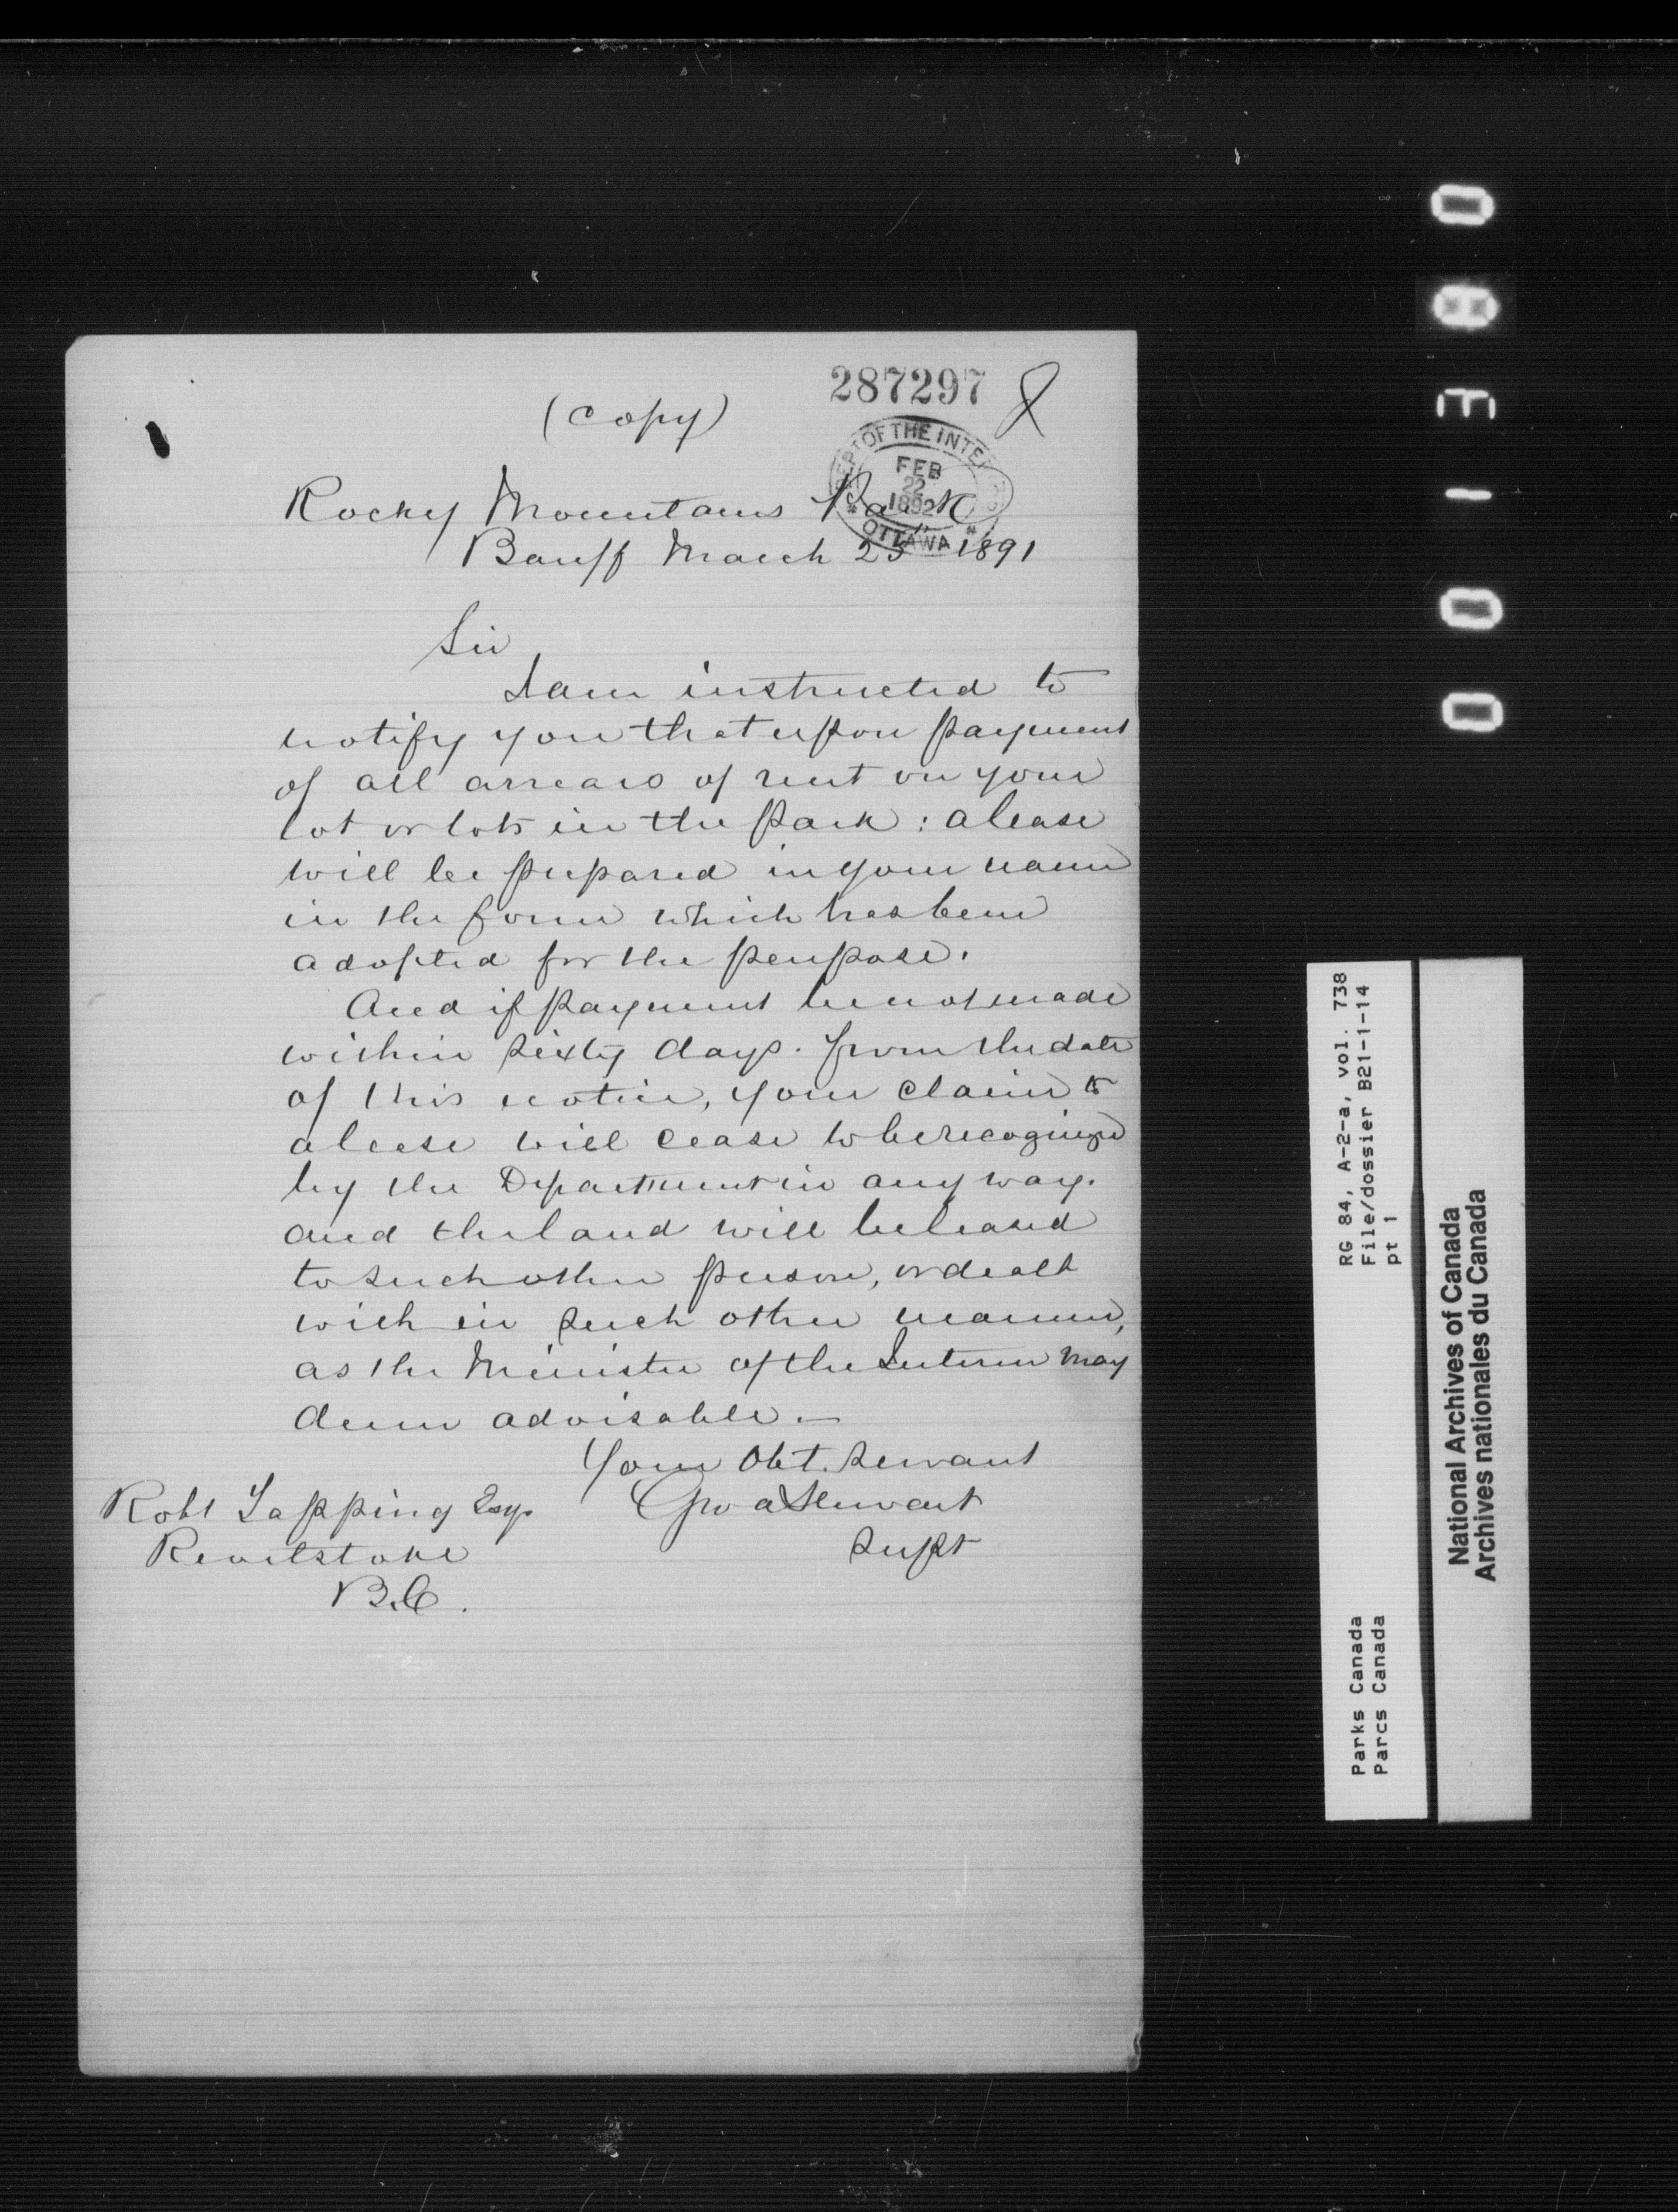 287297 8
(Copy)
DEPT OF THE INTERIOR
FEB
22
1892
* OTTAWA *
Rocky Mountains Park
Banff March 25 1891
Sir
I am instructed to
notify you that upon payment
of all arrears of rent on your
lot or lots in the Park: a lease
will be prepared in your name
in the form which has been
adopted for the purpose.
And if payment be not made
within sixty days. from the date
of this notice, your claim to
a lease will cease to be recognized
by the Department in any way.
and the land will be leased
to such other person, or dealt
with in such other manner,
as the Minister of the Interior may
deem advisable.—
Your Obt. Servant
Geo A Stewart
Supt
Robt Tapping Esq.
Revelstoke
B.C.
RG 84, A-2-a, vol. 738
File/dossier B21-1-14
pt 1
Parks Canada
Parcs Canada
National Archives of Canada
Archives nationales du Canada
001380